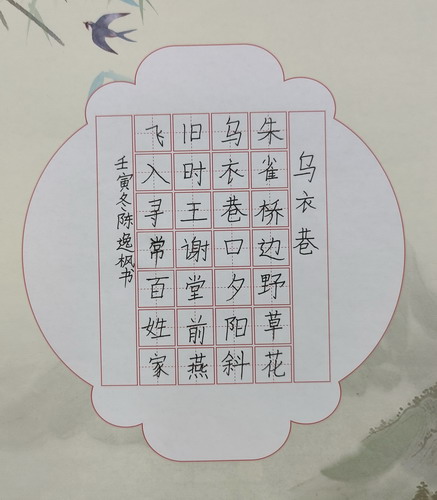 乌衣巷
朱雀桥边野草花
乌衣巷口夕阳斜
旧时王谢堂前燕
飞入寻常百姓家
壬寅冬陈逸枫书